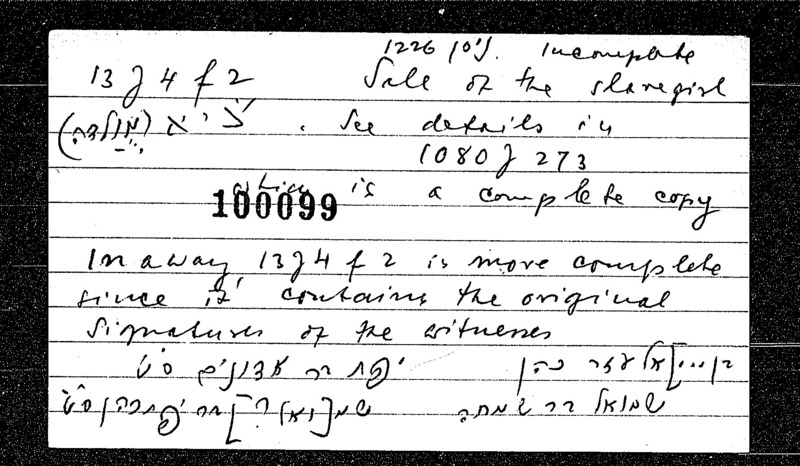 1226 ניסן. Incomplete
13 J 4 f 2 Sale of the slavegirl
צ'יא (מולדה). See details in
1080 J 273
which is a complete copy
100099
In a way 13 J 4 f 2 is more complete
since it contains the original
signatures of the witnesses
אלעזר כהן יפת בר עדונים ס'ט
שמואל בר שמ[ואל?] בר יפת כהן ס'ט